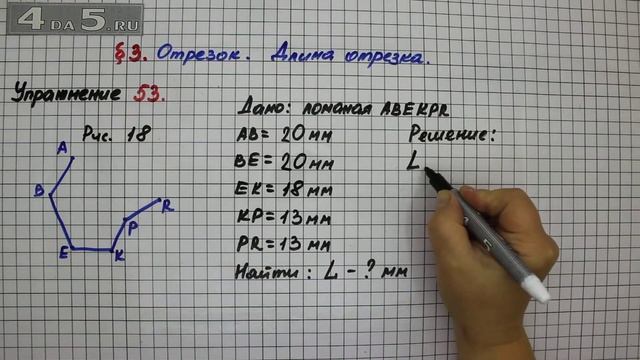 4DA5.RU
§3. Отрезок. Длина отрезка.
Упражнение 53.
Рис. 18
A
B
E
K
P
R
Дано: ломаная ABEKPR
AB = 20 мм
BE = 20 мм
EK = 18 мм
KP = 13 мм
PR = 13 мм
Найти: L - ? мм
Решение:
L